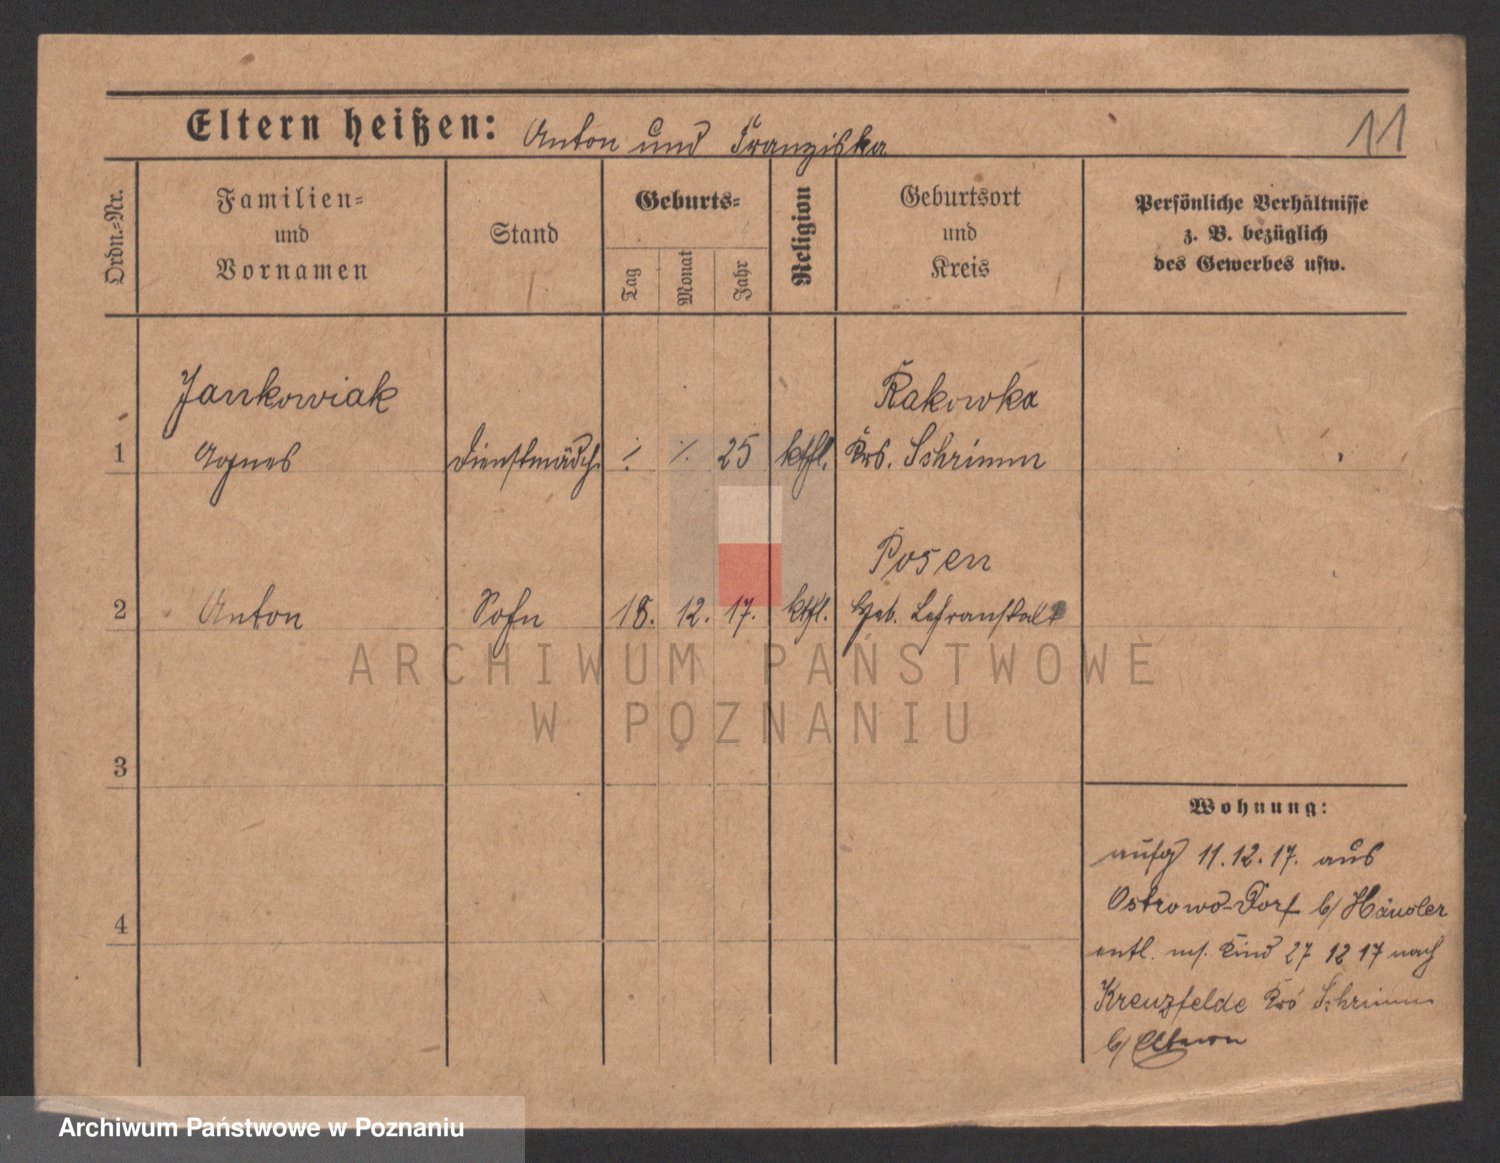 Eltern heißen: Anton und Franziska
11
Ordn.-Nr.
Familien-
und
Vornamen
Stand
Geburts-
Tag
Monat
Jahr
Religion
Geburtsort
und
Kreis
Persönliche Verhältnisse
z. B. bezüglich
des Gewerbes usw.
Jankowiak
Rakowka
1 Agnes Dienstmädch. ⁒ ⁒ 25 kthl. Krs. Schrimm
Posen
2 Anton Sohn 18. 12. 17. kthl. Heb. Lehranstalt
ARCHIWUM PAŃSTWOWE
W POZNANIU
3
4
Wohnung:
aufg 11.12.17. aus
Ostrowo-Dorf b/ Häusler
entl. m/. Kind 27 12 17 nach
Kreuzfelde Krs Schrimm
b/ Eltern
Archiwum Państwowe w Poznaniu